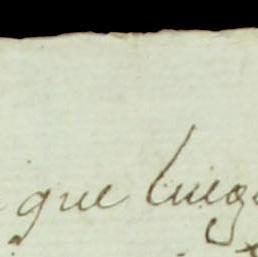 que luego